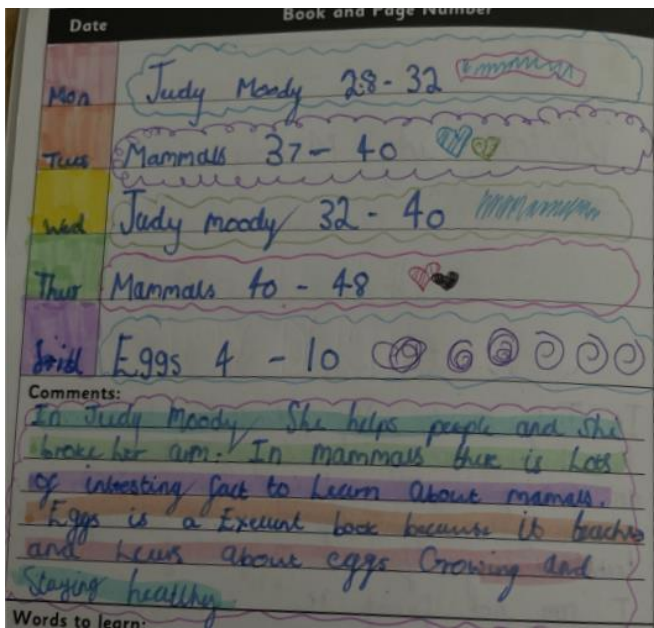 Date Book and Page Number
Mon Judy Moody 28 - 32
Tues Mammals 37 - 40
Wed Judy moody 32 - 40
Thur Mammals 40 - 48
Eggs 4 - 10
Comments:
In Judy Moody She helps people and she
broke her arm. In mammals there is Lots
of intresting fact to Learn about mamals.
Eggs is a Exellent book because it teaches
and about eggs Growing and
Staying healthy.
Words to learn: